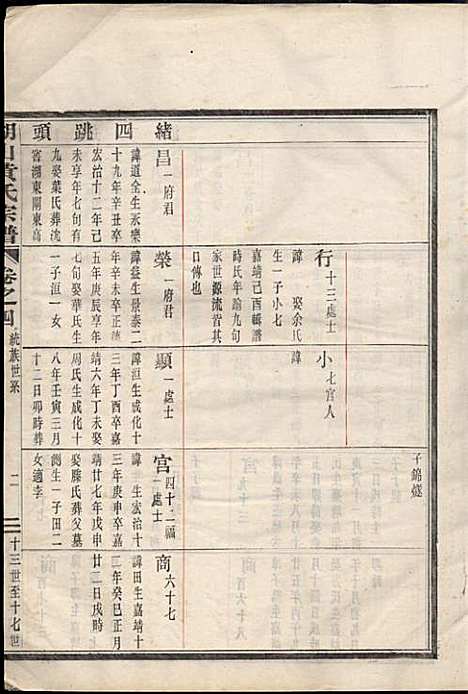 緒四跳頭
子錦燧
行十三處士
諱 娶余氏
生一子小七
嘉靖己酉輯譜
時氏年踰九旬
家世源流皆其
口傳也
小七官人
諱
昌一府君
諱道全生永樂
十九年辛丑卒
宏治十二年己
未享年七旬有
九娶葉氏葬洩
窖湖東閘東高
榮一府君
諱益生景泰二
年辛未卒正德
五年庚辰享年
七旬娶華氏生
一子洹一女
顯一處士
諱洹生成化十
三年丁酉卒嘉
靖六年丁未娶
周氏生成化十
八年壬寅三月
十二日卯時葬
宮四十二福一處士
諱 生宏治十
三年庚申卒嘉
靖廿七年戊申
娶滕氏葬父墓
側生一子田二
女適李
商六十七
諱田生嘉靖十
二年癸巳正月
廿二日戌時
黃氏宗譜
卷之四
統族世系
二
十三世至十七世